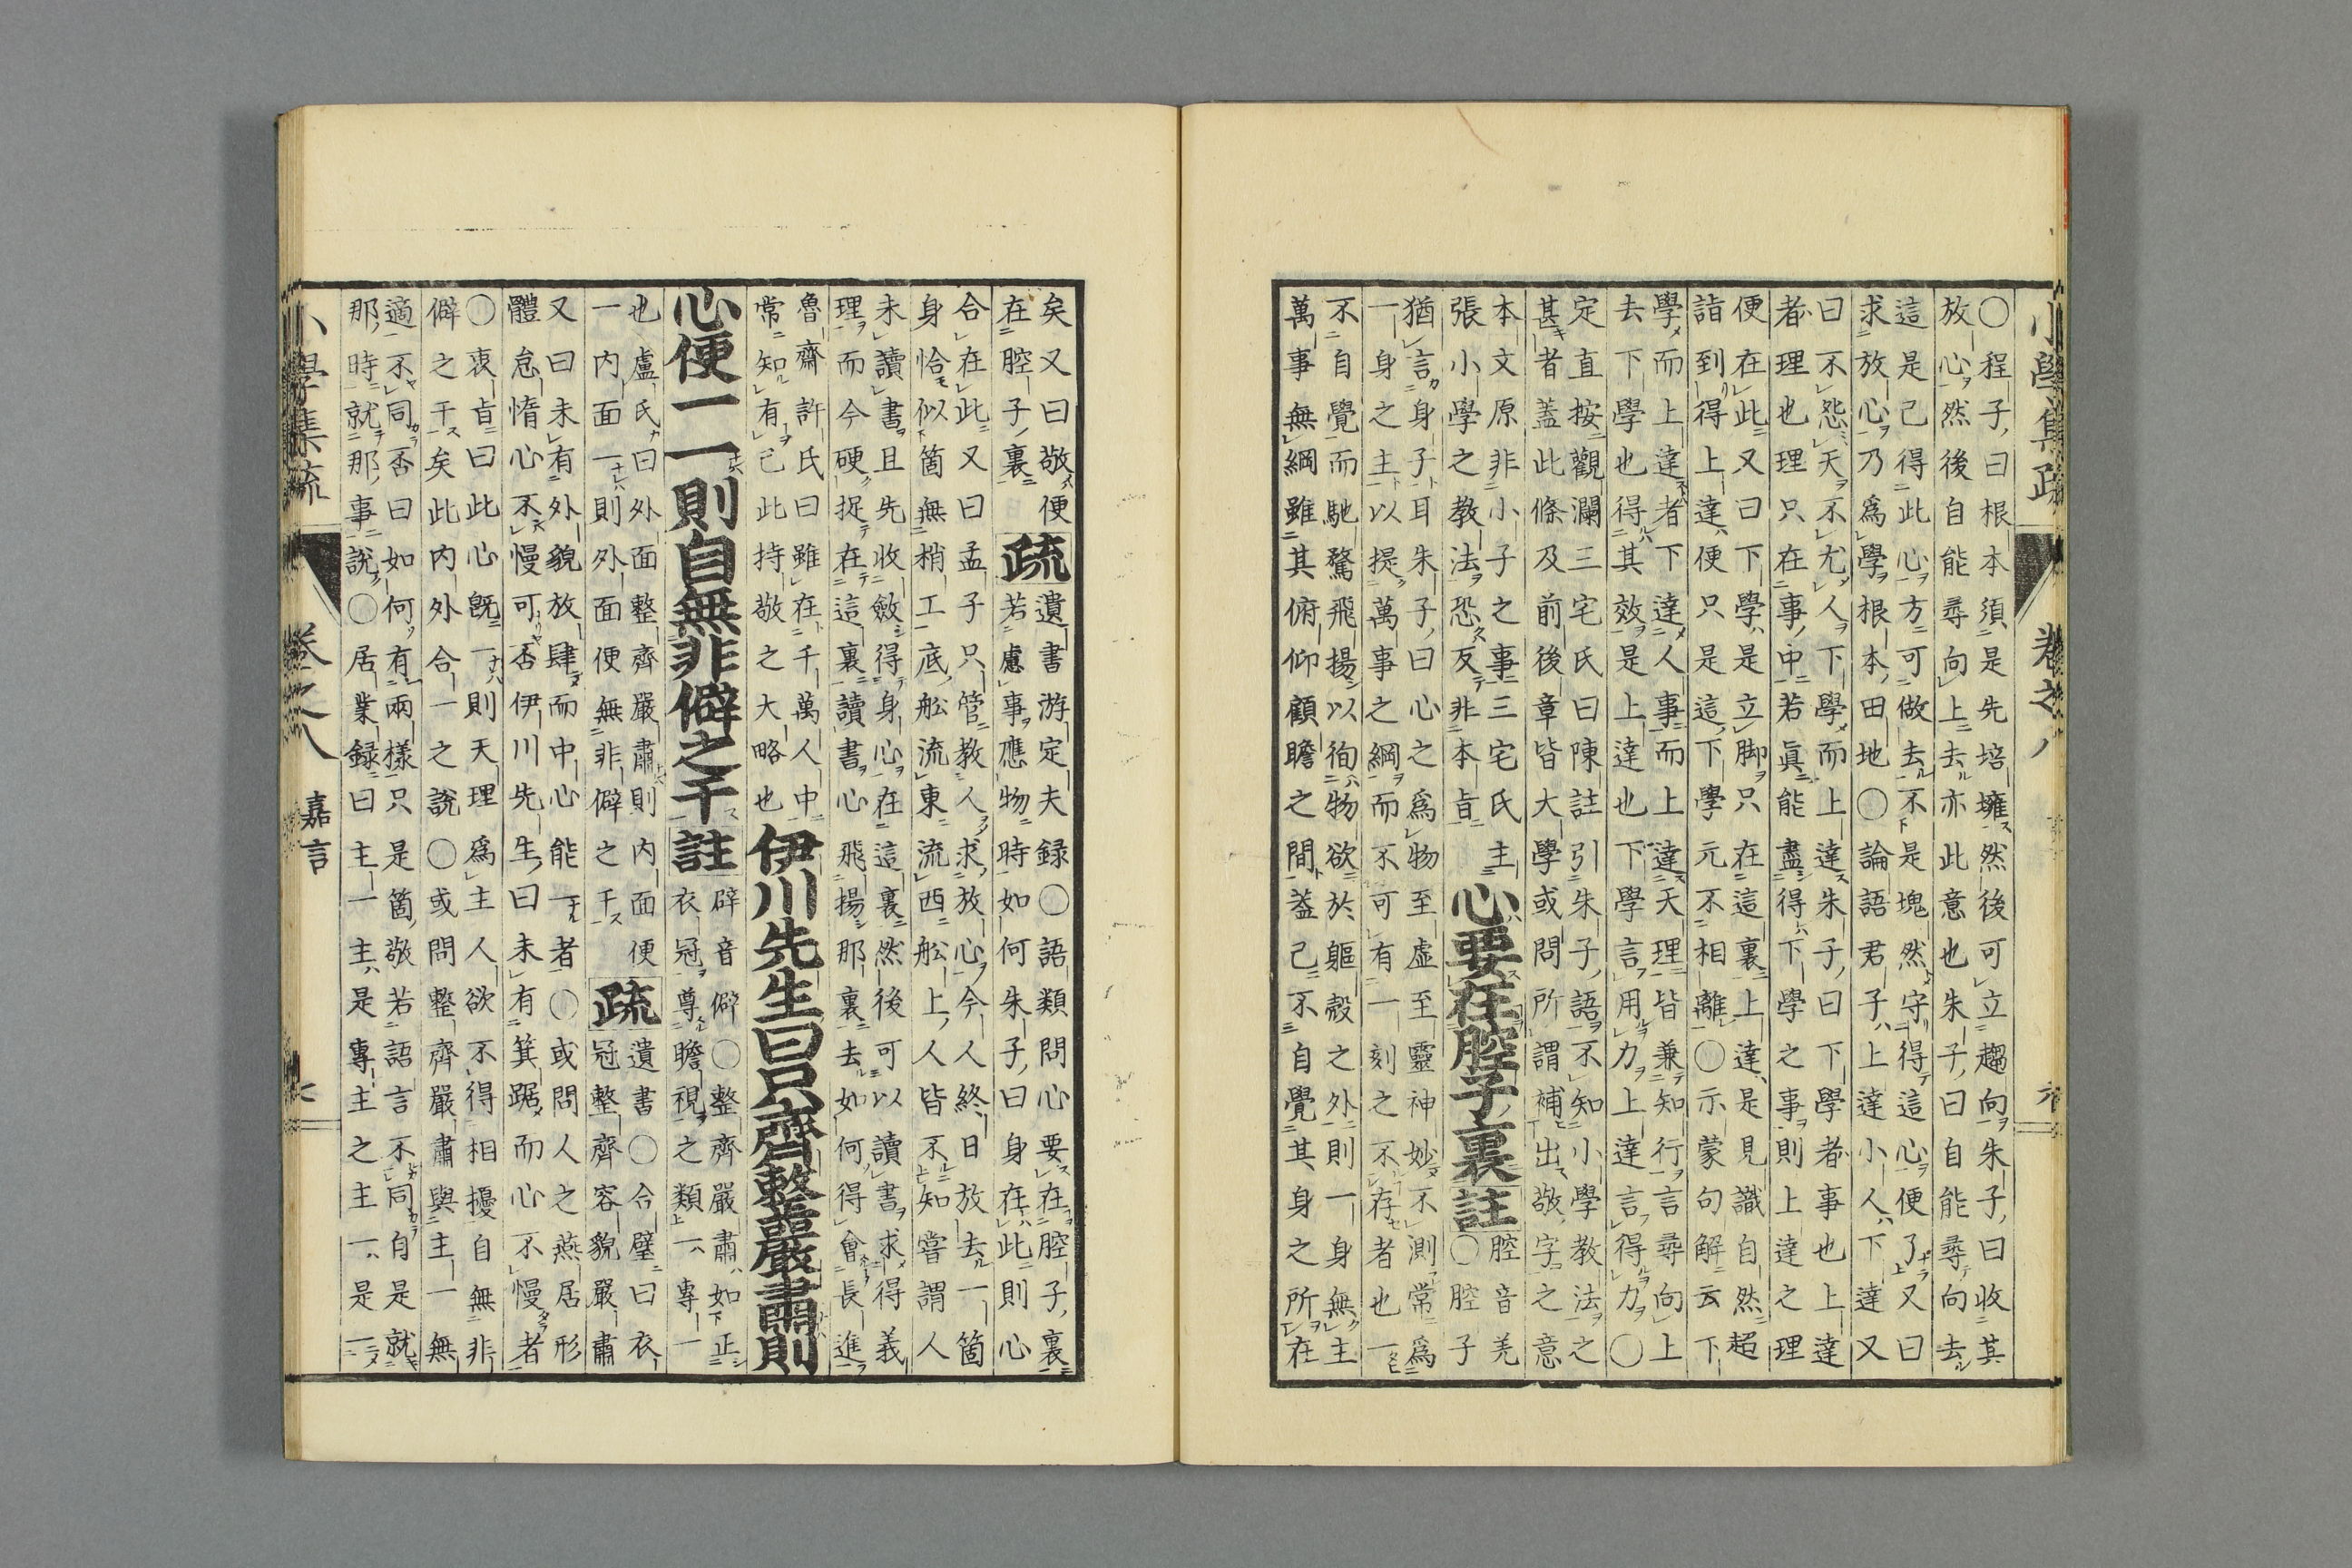 小學集疏 卷之八
〇程子曰根本須是先培壅然後可立趨向朱子曰收其
放心然後自能尋向上去亦此意也朱子曰自能尋向去
這是己得此心方可做去不是塊然守得這心便了又曰
求放心乃爲學根本田地〇論語君子上達小人下達又
曰不怨天不尤人下學而上達朱子曰下學者事也上達
者理也理只在事中若眞能盡得下學之事則上達之理
便在此又曰下學是立脚只在這裏上達是見識自然超
詣到得上達便只是這下學元不相離〇示蒙句解云下
學而上達者下達人事而上達天理皆兼知行言尋向上
去下學也得其效是上達也下學言用力上達言得力〇
定直按觀瀾三宅氏曰陳註引朱子語不知小學教法之
甚者蓋此條及前後章皆大學或問所謂補出敬字之意
本文原非小子之事三宅氏主
張小學之教法恐反非本旨
心要在腔子裏註
腔音羌
〇腔子
猶言身子耳朱子曰心之爲物至虛至靈神妙不測常爲
一身之主以提萬事之綱而不可有一刻之不存者也一
不自覺而馳騖飛揚以徇物欲於軀殼之外則一身無主
萬事無綱雖其俯仰顧瞻之間蓋己不自覺其身之所在
矣又曰敬便
在腔子裏
疏
遺書游定夫録〇語類問心要在腔子裏
若慮事應物時如何朱子曰身在此則心
合在此又曰孟子只管教人求放心今人終日放去一箇
身恰似箇無梢工底舩流東流西舩上人皆不知嘗謂人
未讀書且先收斂得身心在這裏然後可以讀書求得義
理而今硬捉在這裏讀書心飛揚那裏去如何得會長進
魯齋許氏曰雖在千萬人中
常知有己此持敬之大略也
伊川先生曰只齊整嚴肅則
心便一一則自無非僻之干註
辟音僻〇整齊嚴肅如正
衣冠尊瞻視之類一專一
也盧氏曰外面整齊嚴肅則內面便
一內面一則外面便無非僻之干
疏
遺書〇合璧曰衣
冠整齊容貌嚴肅
又曰未有外貌放肆而中心能一者〇或問人之燕居形
體怠惰心不慢可否伊川先生曰未有箕踞而心不慢者
〇衷旨曰此心旣一則天理爲主人欲不得相擾自無非
僻之干矣此內外合一之說〇或問整齊嚴肅與主一無
適不同否曰如何有兩樣只是箇敬若語言不同自是就
那時就那事說〇居業録曰主一主是專主之主一是一
小學集疏 卷之八 嘉言